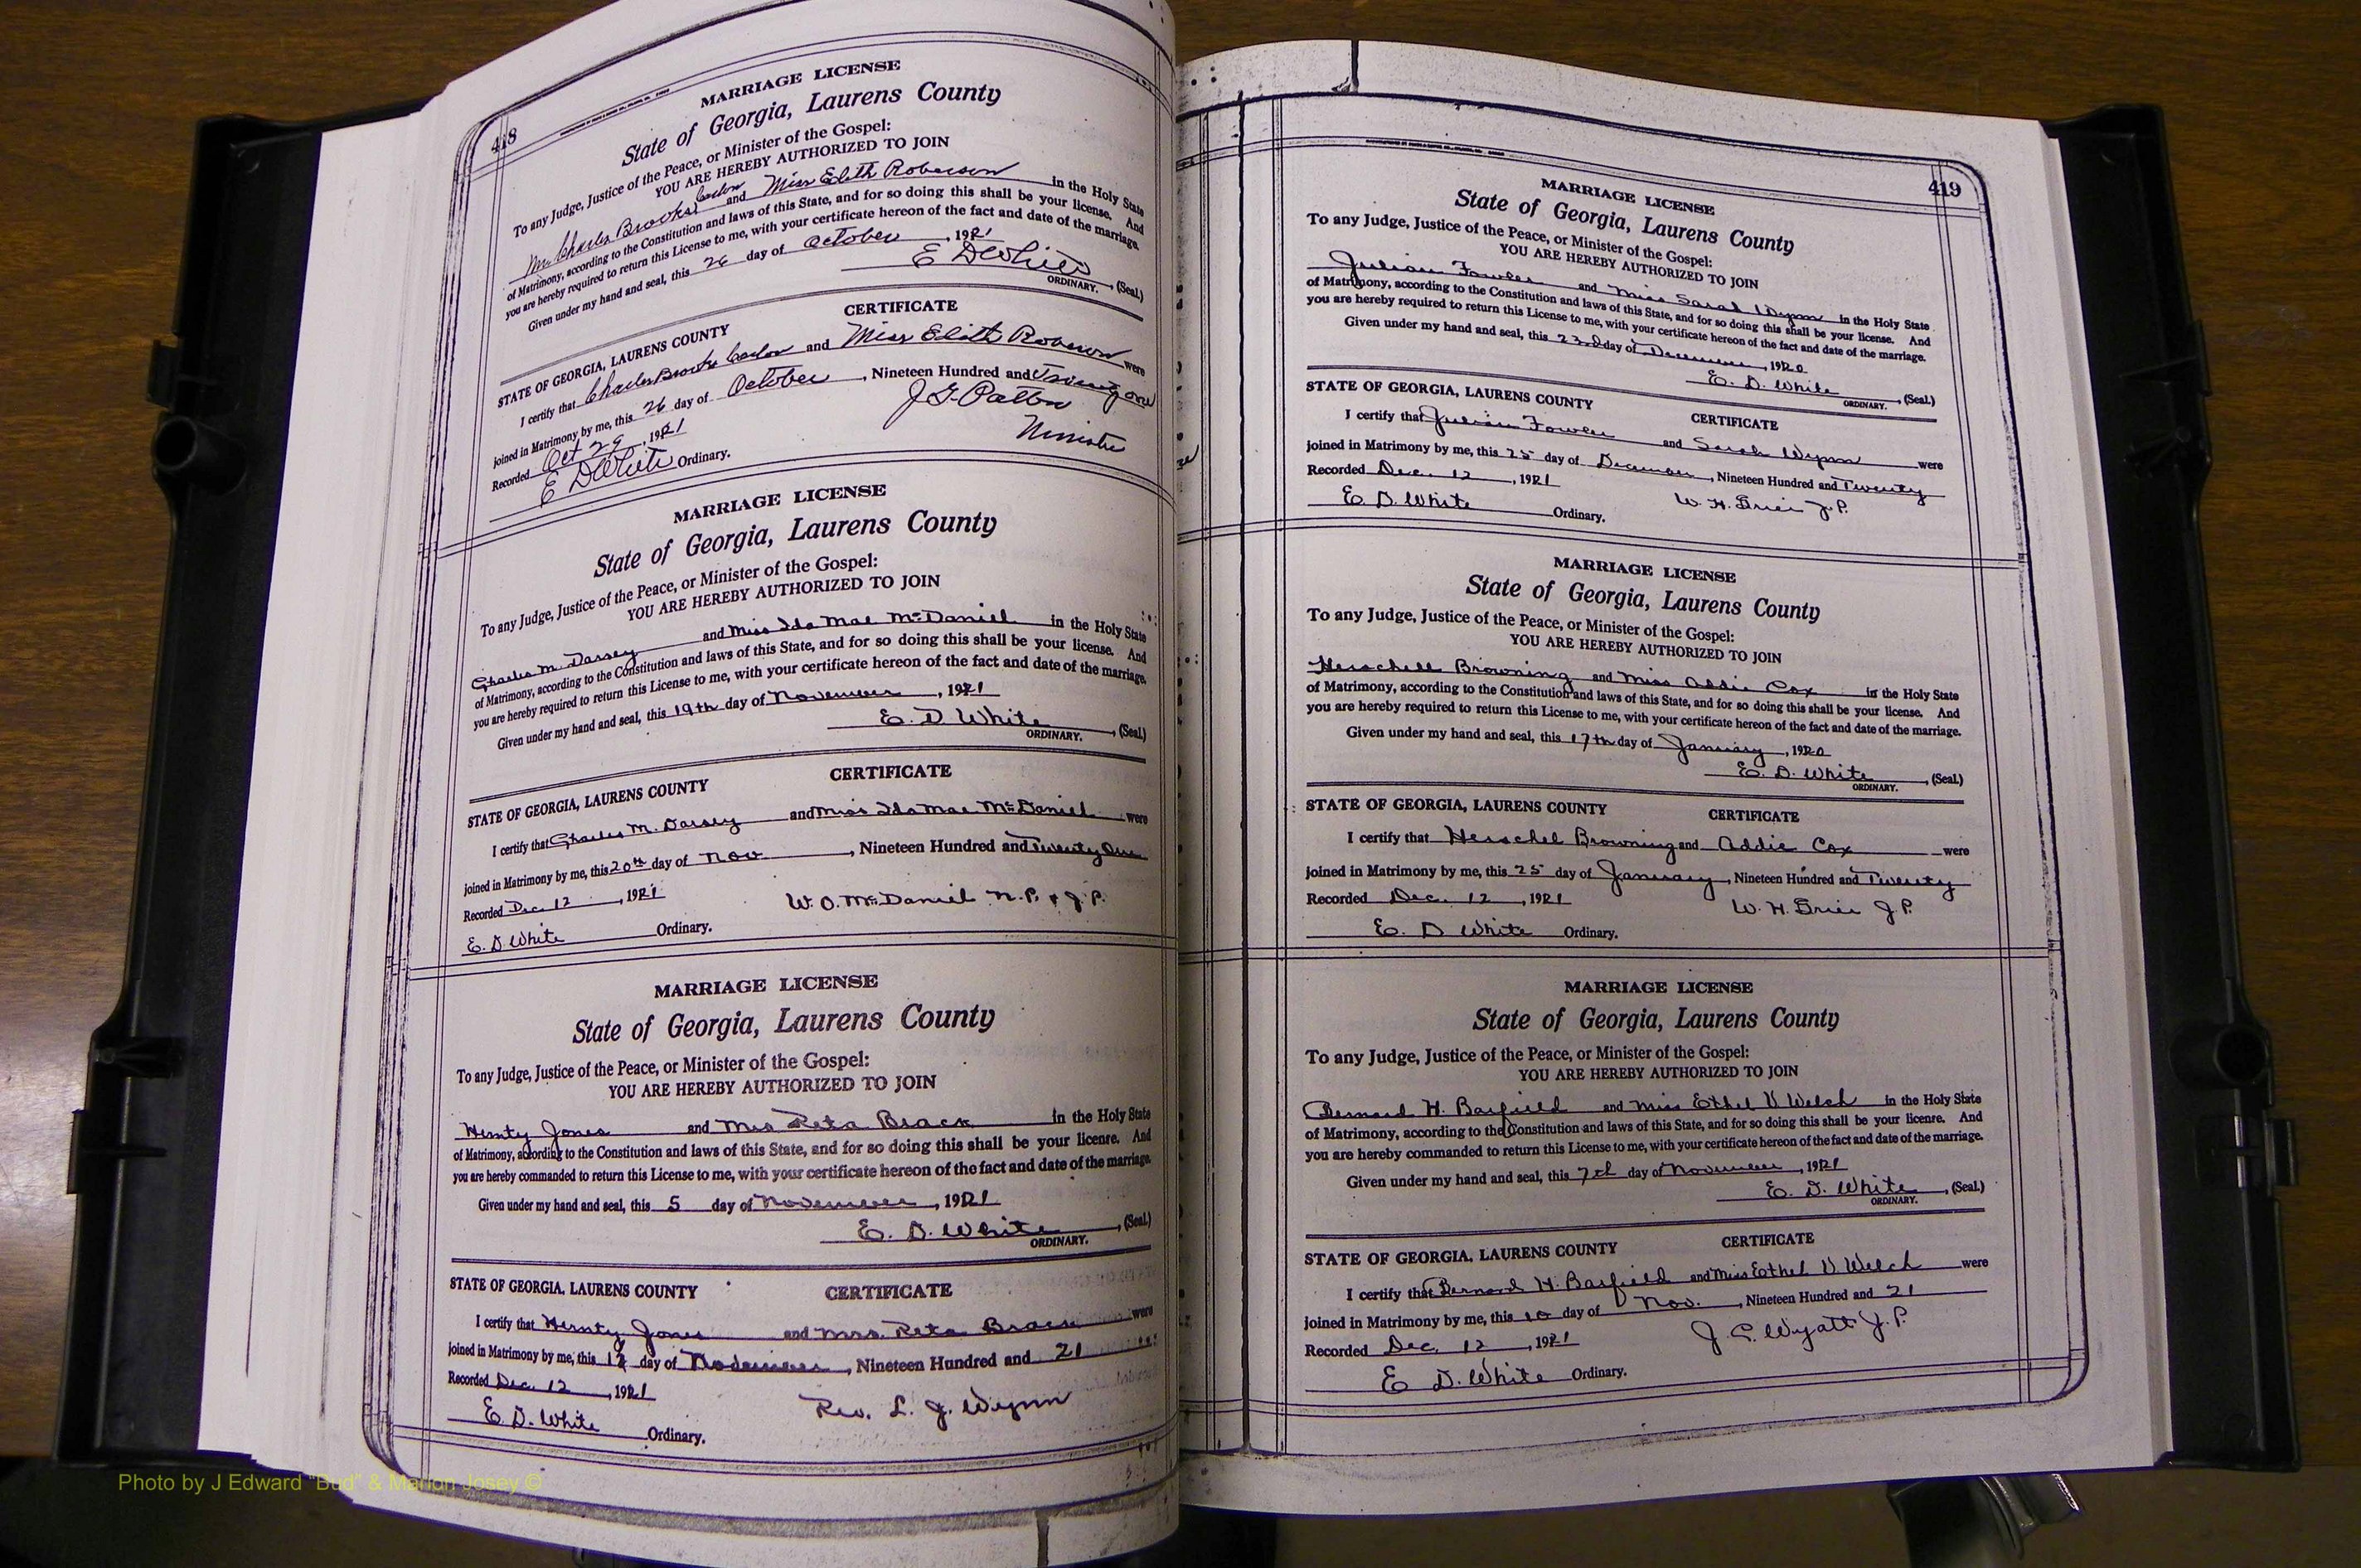 418
MARRIAGE LICENSE
State of Georgia, Laurens County
To any Judge, Justice of the Peace, or Minister of the Gospel:
YOU ARE HEREBY AUTHORIZED TO JOIN
Mr. Charles Brooks and Miss Edith Roberson in the Holy State
of Matrimony, according to the Constitution and laws of this State, and for so doing this shall be your license. And
you are hereby required to return this License to me, with your certificate hereon of the fact and date of the marriage.
Given under my hand and seal, this 26 day of October, 1921
E D White (Seal.)
ORDINARY.
CERTIFICATE
STATE OF GEORGIA, LAURENS COUNTY
I certify that Charles Brooks and Miss Edith Roberson were
joined in Matrimony by me, this 26 day of October, Nineteen Hundred and Twenty one
Recorded Oct 29, 1921
J G Patton
Minister
E D White Ordinary.
MARRIAGE LICENSE
State of Georgia, Laurens County
To any Judge, Justice of the Peace, or Minister of the Gospel:
YOU ARE HEREBY AUTHORIZED TO JOIN
Charles M. Darsey and Miss Ida Mae McDaniel in the Holy State
of Matrimony, according to the Constitution and laws of this State, and for so doing this shall be your license. And
you are hereby required to return this License to me, with your certificate hereon of the fact and date of the marriage.
Given under my hand and seal, this 19th day of November, 1921
E. D White (Seal.)
ORDINARY.
CERTIFICATE
STATE OF GEORGIA, LAURENS COUNTY
I certify that Charles M. Darsey and Miss Ida Mae McDaniel were
joined in Matrimony by me, this 20th day of Nov, Nineteen Hundred and Twenty One
Recorded Dec. 12, 1921
W. O. McDaniel N.P. & J.P.
E. D. White Ordinary.
MARRIAGE LICENSE
State of Georgia, Laurens County
To any Judge, Justice of the Peace, or Minister of the Gospel:
YOU ARE HEREBY AUTHORIZED TO JOIN
Hernty Jones and Mrs Reta Brack in the Holy State
of Matrimony, according to the Constitution and laws of this State, and for so doing this shall be your licenre. And
you are hereby commanded to return this License to me, with your certificate hereon of the fact and date of the marriage.
Given under my hand and seal, this 5 day of November, 1921
E. D. White (Seal)
ORDINARY.
CERTIFICATE
STATE OF GEORGIA. LAURENS COUNTY
I certify that Hernty Jones and Mrs. Reta Brack were
joined in Matrimony by me, this day of November, Nineteen Hundred and 21
Recorded Dec. 12, 1921
Rev. L. J. Wynn
E. D. White Ordinary.
419
MARRIAGE LICENSE
State of Georgia, Laurens County
To any Judge, Justice of the Peace, or Minister of the Gospel:
YOU ARE HEREBY AUTHORIZED TO JOIN
Julian Fowler and Miss Sarah Wynn in the Holy State
of Matrimony, according to the Constitution and laws of this State, and for so doing this shall be your license. And
you are hereby required to return this License to me, with your certificate hereon of the fact and date of the marriage.
Given under my hand and seal, this 23d day of December, 1920
E. D. White (Seal.)
ORDINARY.
CERTIFICATE
STATE OF GEORGIA, LAURENS COUNTY
I certify that Julian Fowler and Sarah Wynn were
joined in Matrimony by me, this 25 day of December, Nineteen Hundred and Twenty
Recorded Dec. 12, 1921
W. H. Grier J.P.
E. D. White Ordinary.
MARRIAGE LICENSE
State of Georgia, Laurens County
To any Judge, Justice of the Peace, or Minister of the Gospel:
YOU ARE HEREBY AUTHORIZED TO JOIN
Herschell Browning and Miss Addie Cox in the Holy State
of Matrimony, according to the Constitution and laws of this State, and for so doing this shall be your license. And
you are hereby required to return this License to me, with your certificate hereon of the fact and date of the marriage.
Given under my hand and seal, this 17th day of January, 1920
E. D. White (Seal.)
ORDINARY.
CERTIFICATE
STATE OF GEORGIA, LAURENS COUNTY
I certify that Herschel Browning and Addie Cox were
joined in Matrimony by me, this 25 day of January, Nineteen Hundred and Twenty
Recorded Dec. 12, 1921
W. H. Grier J.P.
E. D White Ordinary.
MARRIAGE LICENSE
State of Georgia, Laurens County
To any Judge, Justice of the Peace, or Minister of the Gospel:
YOU ARE HEREBY AUTHORIZED TO JOIN
Bernard H. Barfield and Miss Ethel V Welch in the Holy State
of Matrimony, according to the Constitution and laws of this State, and for so doing this shall be your licenre. And
you are hereby commanded to return this License to me, with your certificate hereon of the fact and date of the marriage.
Given under my hand and seal, this 7th day of November, 1921
E. D. White (Seal.)
ORDINARY.
CERTIFICATE
STATE OF GEORGIA. LAURENS COUNTY
I certify that Bernard H. Barfield and Miss Ethel V Welch were
joined in Matrimony by me, this 10 day of Nov., Nineteen Hundred and 21
Recorded Dec. 12, 1921
J. E. Wyatt J.P.
E D. White Ordinary.
Photo by J Edward "Bud" & Marion Josey ©